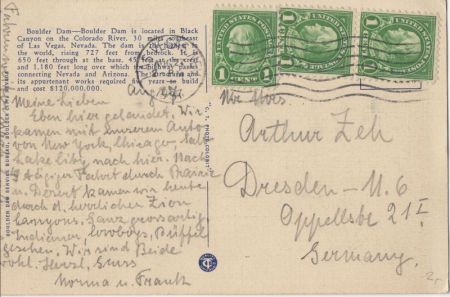 Boulder Dam—Boulder Dam is located in Black
Canyon on the Colorado River, 30 miles southeast
of Las Vegas, Nevada. The dam is the highest in
the world, rising 727 feet from bedrock. It is
650 feet through at the base, 45 feet at the crest
and 1,180 feet long over which the highway
connecting Nevada and Arizona. The
its appurtenant works required years to build
and cost $120,000,000.
UNITED STATES POSTAGE
1 CENT 1
1
1
Aug
Meine Lieben
Eben hier gelandet. Wir
kamen mit unserem Auto
von New York, Chicago, Salt
Lake City, nach hier. Nach
9 tägiger Fahrt durch Prairie
u. Desert kamen wir heute
durch d. herrlichen Zion
Canyons. Ganz grossartig.
Indianer, Cowboys, Büffel
gesehen. Wir sind Beide
wohl. Herzl. Gruss
Norma u. Frank
C. T. PHOTO-COLORIT
Mr Mrs.
Arthur Zeh
Dresden-N. 6
Oppellstr 21 I
Germany.